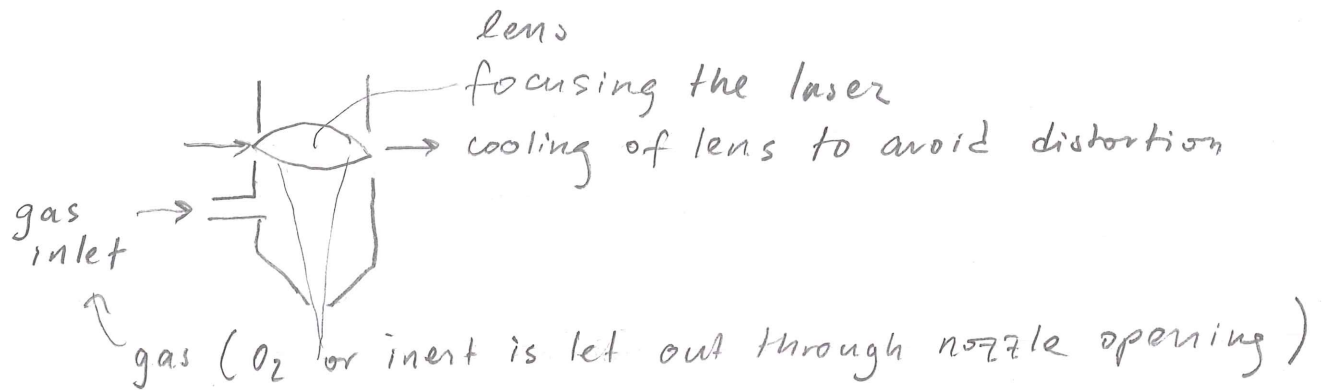 lens
focusing the laser
cooling of lens to avoid distortion
gas
inlet
gas (O₂ or inert is let out through nozzle opening)